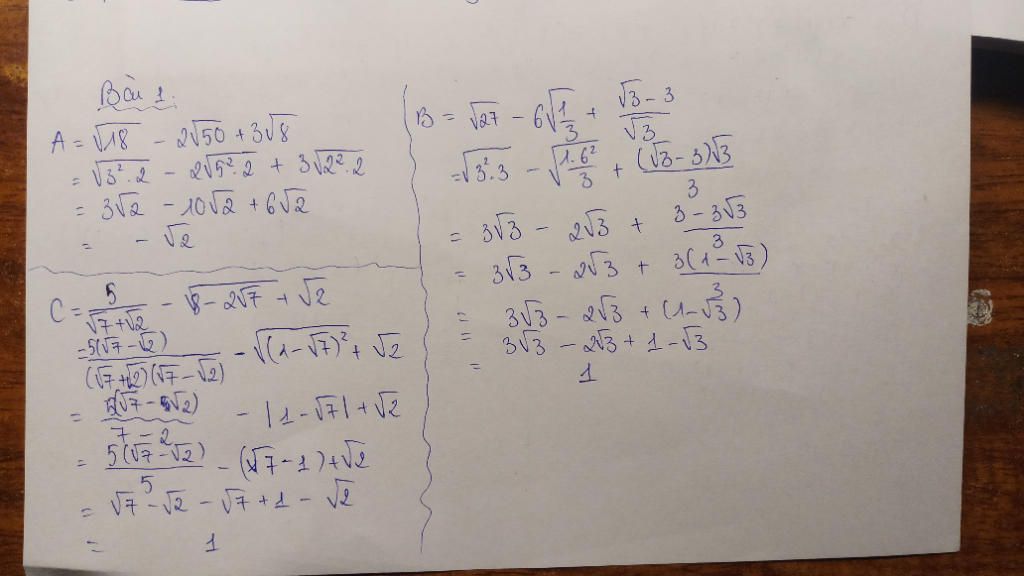 Bài 1.
A = √18 - 2√50 + 3√8
= √3².2 - 2√5².2 + 3√2².2
= 3√2 - 10√2 + 6√2
= - √2
C = 5/(√7+√2) - √(8 - 2√7) + √2
= 5(√7-√2)/((√7+√2)(√7-√2)) - √((1-√7)²) + √2
= 5(√7-√2)/(7-2) - |1-√7| + √2
= 5(√7-√2)/5 - (√7-1) + √2
= √7 - √2 - √7 + 1 - √2
= 1
B = √27 - 6√(1/3) + (√3-3)/√3
= √3².3 - √(1.6²/3) + (√3-3)√3/3
= 3√3 - 2√3 + (3-3√3)/3
= 3√3 - 2√3 + 3(1-√3)/3
= 3√3 - 2√3 + (1-√3)
= 3√3 - 2√3 + 1 - √3
= 1